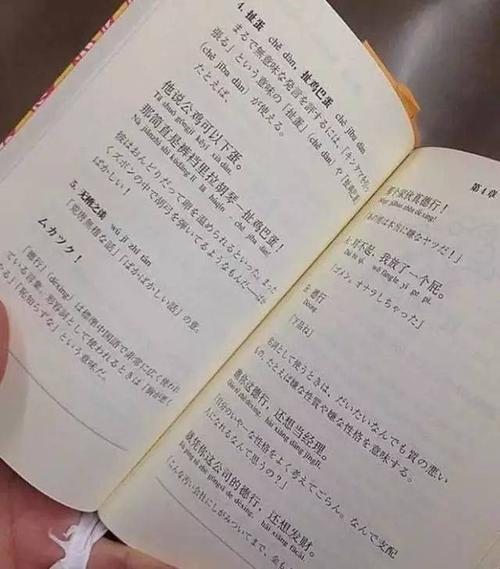 4. 扯蛋 chě dàn, 扯鸡巴蛋 chě jība dàn
まるで無意味な発言を評するには、「キンタマを引っ
張る」という意味の「扯蛋」(chě dàn) や「扯鸡巴蛋」
(chě jība dàn) が使える。
たとえば、
他说公鸡可以下蛋。
Tā shuō gōngjī kěyǐ xià dàn.
那简直是裤裆里拉胡琴—扯鸡巴蛋！
Nà jiǎnzhí shì kùdāng lǐ lā húqín – chě jība dàn!
彼はおんどりだって卵を温められるといった。まった
くズボンの中で胡弓を弾いてるようなもんだ—ばか
ばかしい！
5. 无稽之谈 wú jī zhī tán
「荒唐無稽な話」「ばかばかしい話」の意。
ムカツク！
「德行」(déxing) は標準中国語で非常に広く使われ
ている言葉。形容詞として使われるときは「胸が悪く
なる」「恥知らずな」という意味だ。
第4章
那个家伙真德行！
「あの男は本当に嫌なヤツだ！」
对不起，我放了一个屁。
Duì bù qǐ, wǒ fàngle yí ge pì.
「ゴメン、オナラしちゃった」
德行
Déxing
「下品ね」
名詞として使うときは、だいたいなんでも質の悪い
もの、たとえば嫌な性質や嫌な性格を意味する。
瞧你这德行，还想当经理。
Qiáo nǐ zhè déxing, hái xiǎng dāng jīnglǐ.
「自分のいやーな性格をよく考えてごらん。なんで支配
人になれるなんて思うの？」
这公司的德行，还想发财。
zhè gōngsī de déxing, hái xiǎng fācái.
「こんな古い会社にしがみついてまで、金も